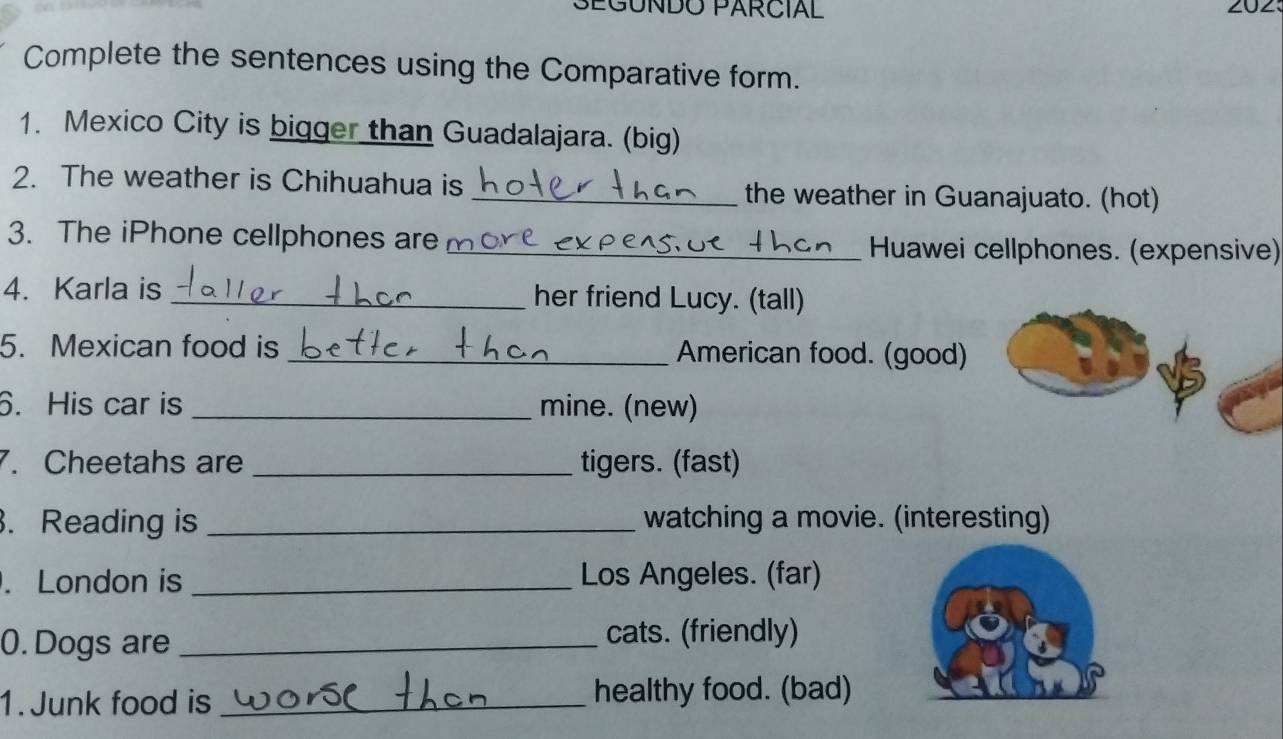 SEGUNDO PARCIAL
Complete the sentences using the Comparative form.
1. Mexico City is bigger than Guadalajara. (big)
2. The weather is Chihuahua is hoter than the weather in Guanajuato. (hot)
3. The iPhone cellphones are more expensive than Huawei cellphones. (expensive)
4. Karla is taller than her friend Lucy. (tall)
5. Mexican food is better than American food. (good)
6. His car is ____________ mine. (new)
7. Cheetahs are ____________ tigers. (fast)
8. Reading is ____________ watching a movie. (interesting)
. London is ____________ Los Angeles. (far)
0. Dogs are ____________ cats. (friendly)
1. Junk food is worse than healthy food. (bad)
VS